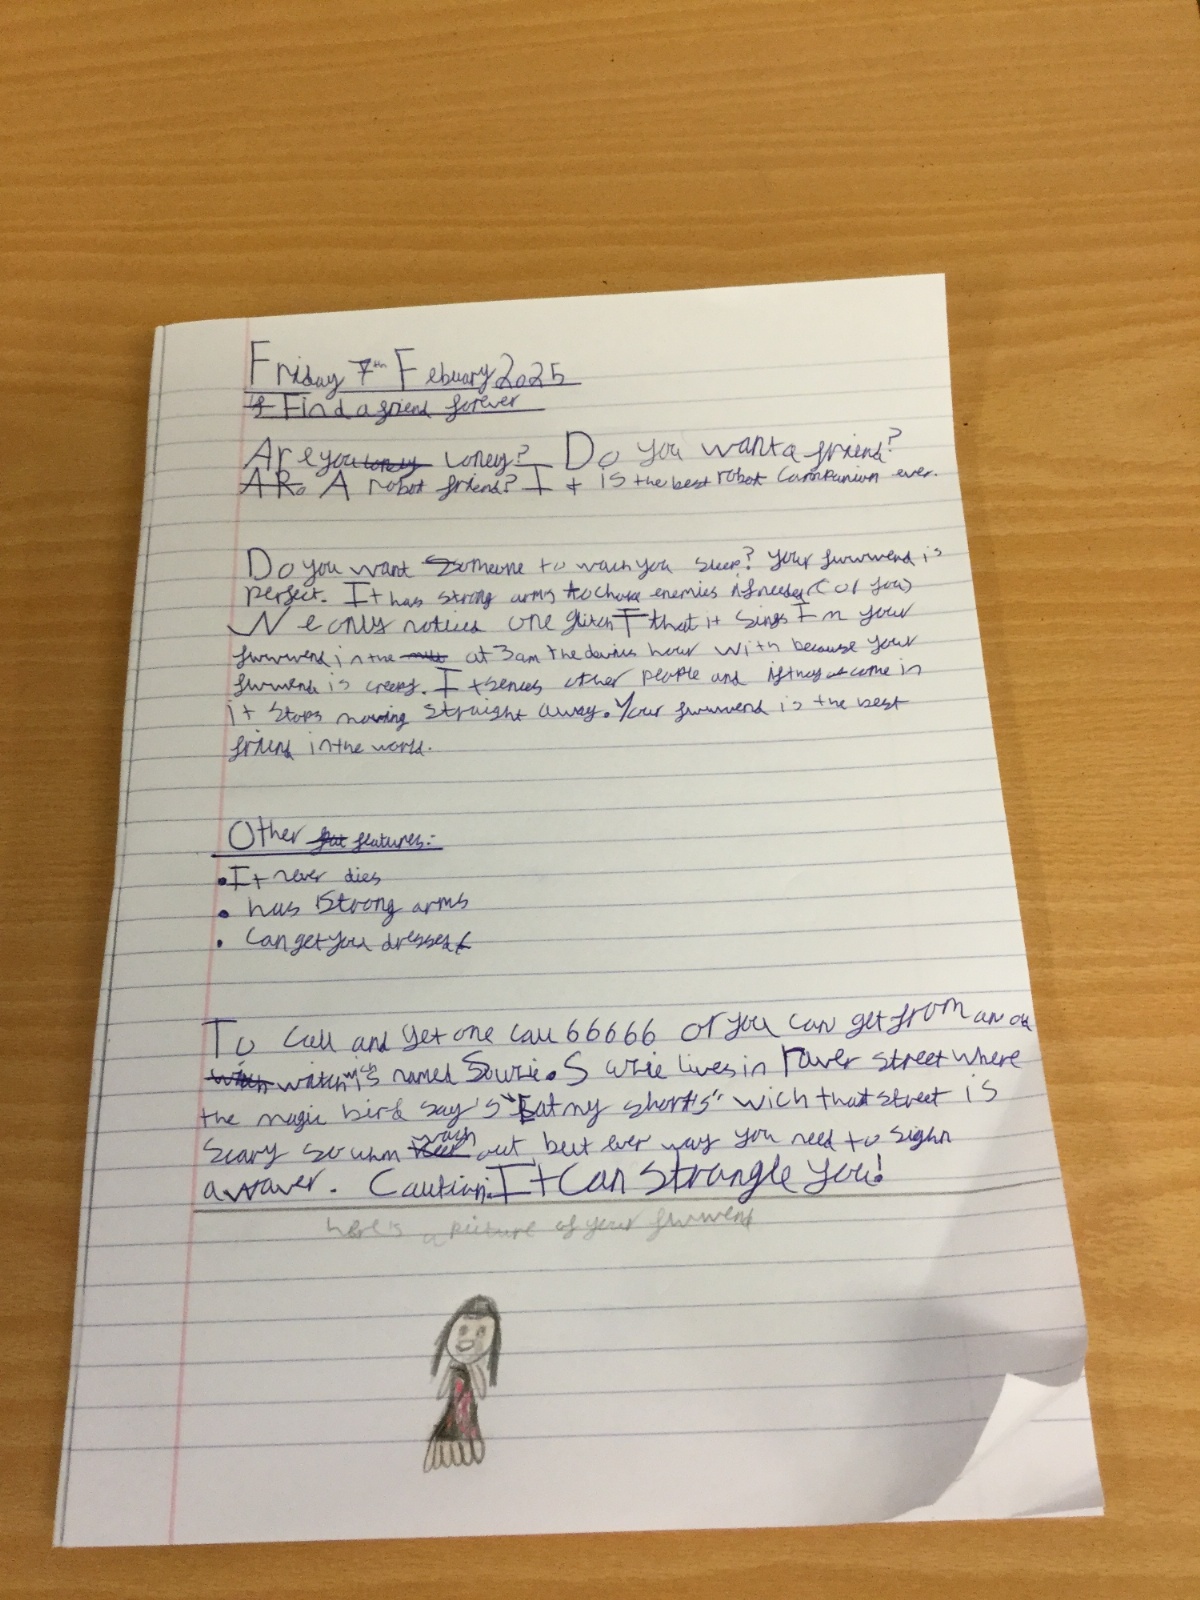 Friday 7th Febuary 2025
Find a friend forever
Are you loney? Do you want a friend?
A robot friend? It is the best robot companion ever.
Do you want someone to wach you sleep? Your fwwwend is
perfect. It has strong arms to choke enemies if needer (or you)
We only notices one glitch that it sings I'm your
fwwwend in the at 3am the devils hour with because your
fwwwend is creepy. It sences other people and if they come in
it stops moving straight away. Your fwwwend is the best
friend in the world.
Other features:-
• It never dies
• has strong arms
• Can get you dressed
To call and get one call 66666 or you can get from an old
witch named Souzie. Souzie lives in Tower street where
the magic bird say's "Eat my short's" wich that street is
scary so wach out but ever way you need to sighn
a waver. Caution: It Can Strangle you!
here's a picture of your fwwwend